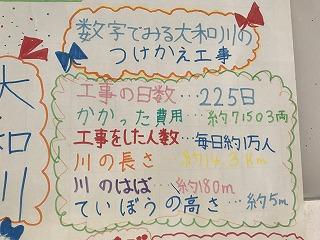 数字でみる大和川の
つけかえ工事
工事の日数…225日
かかった費用…約71503両
工事をした人数…毎日約1万人
川の長さ…約14.3Km
川のはば…約180m
ていぼうの高さ…約5m
大
和
川